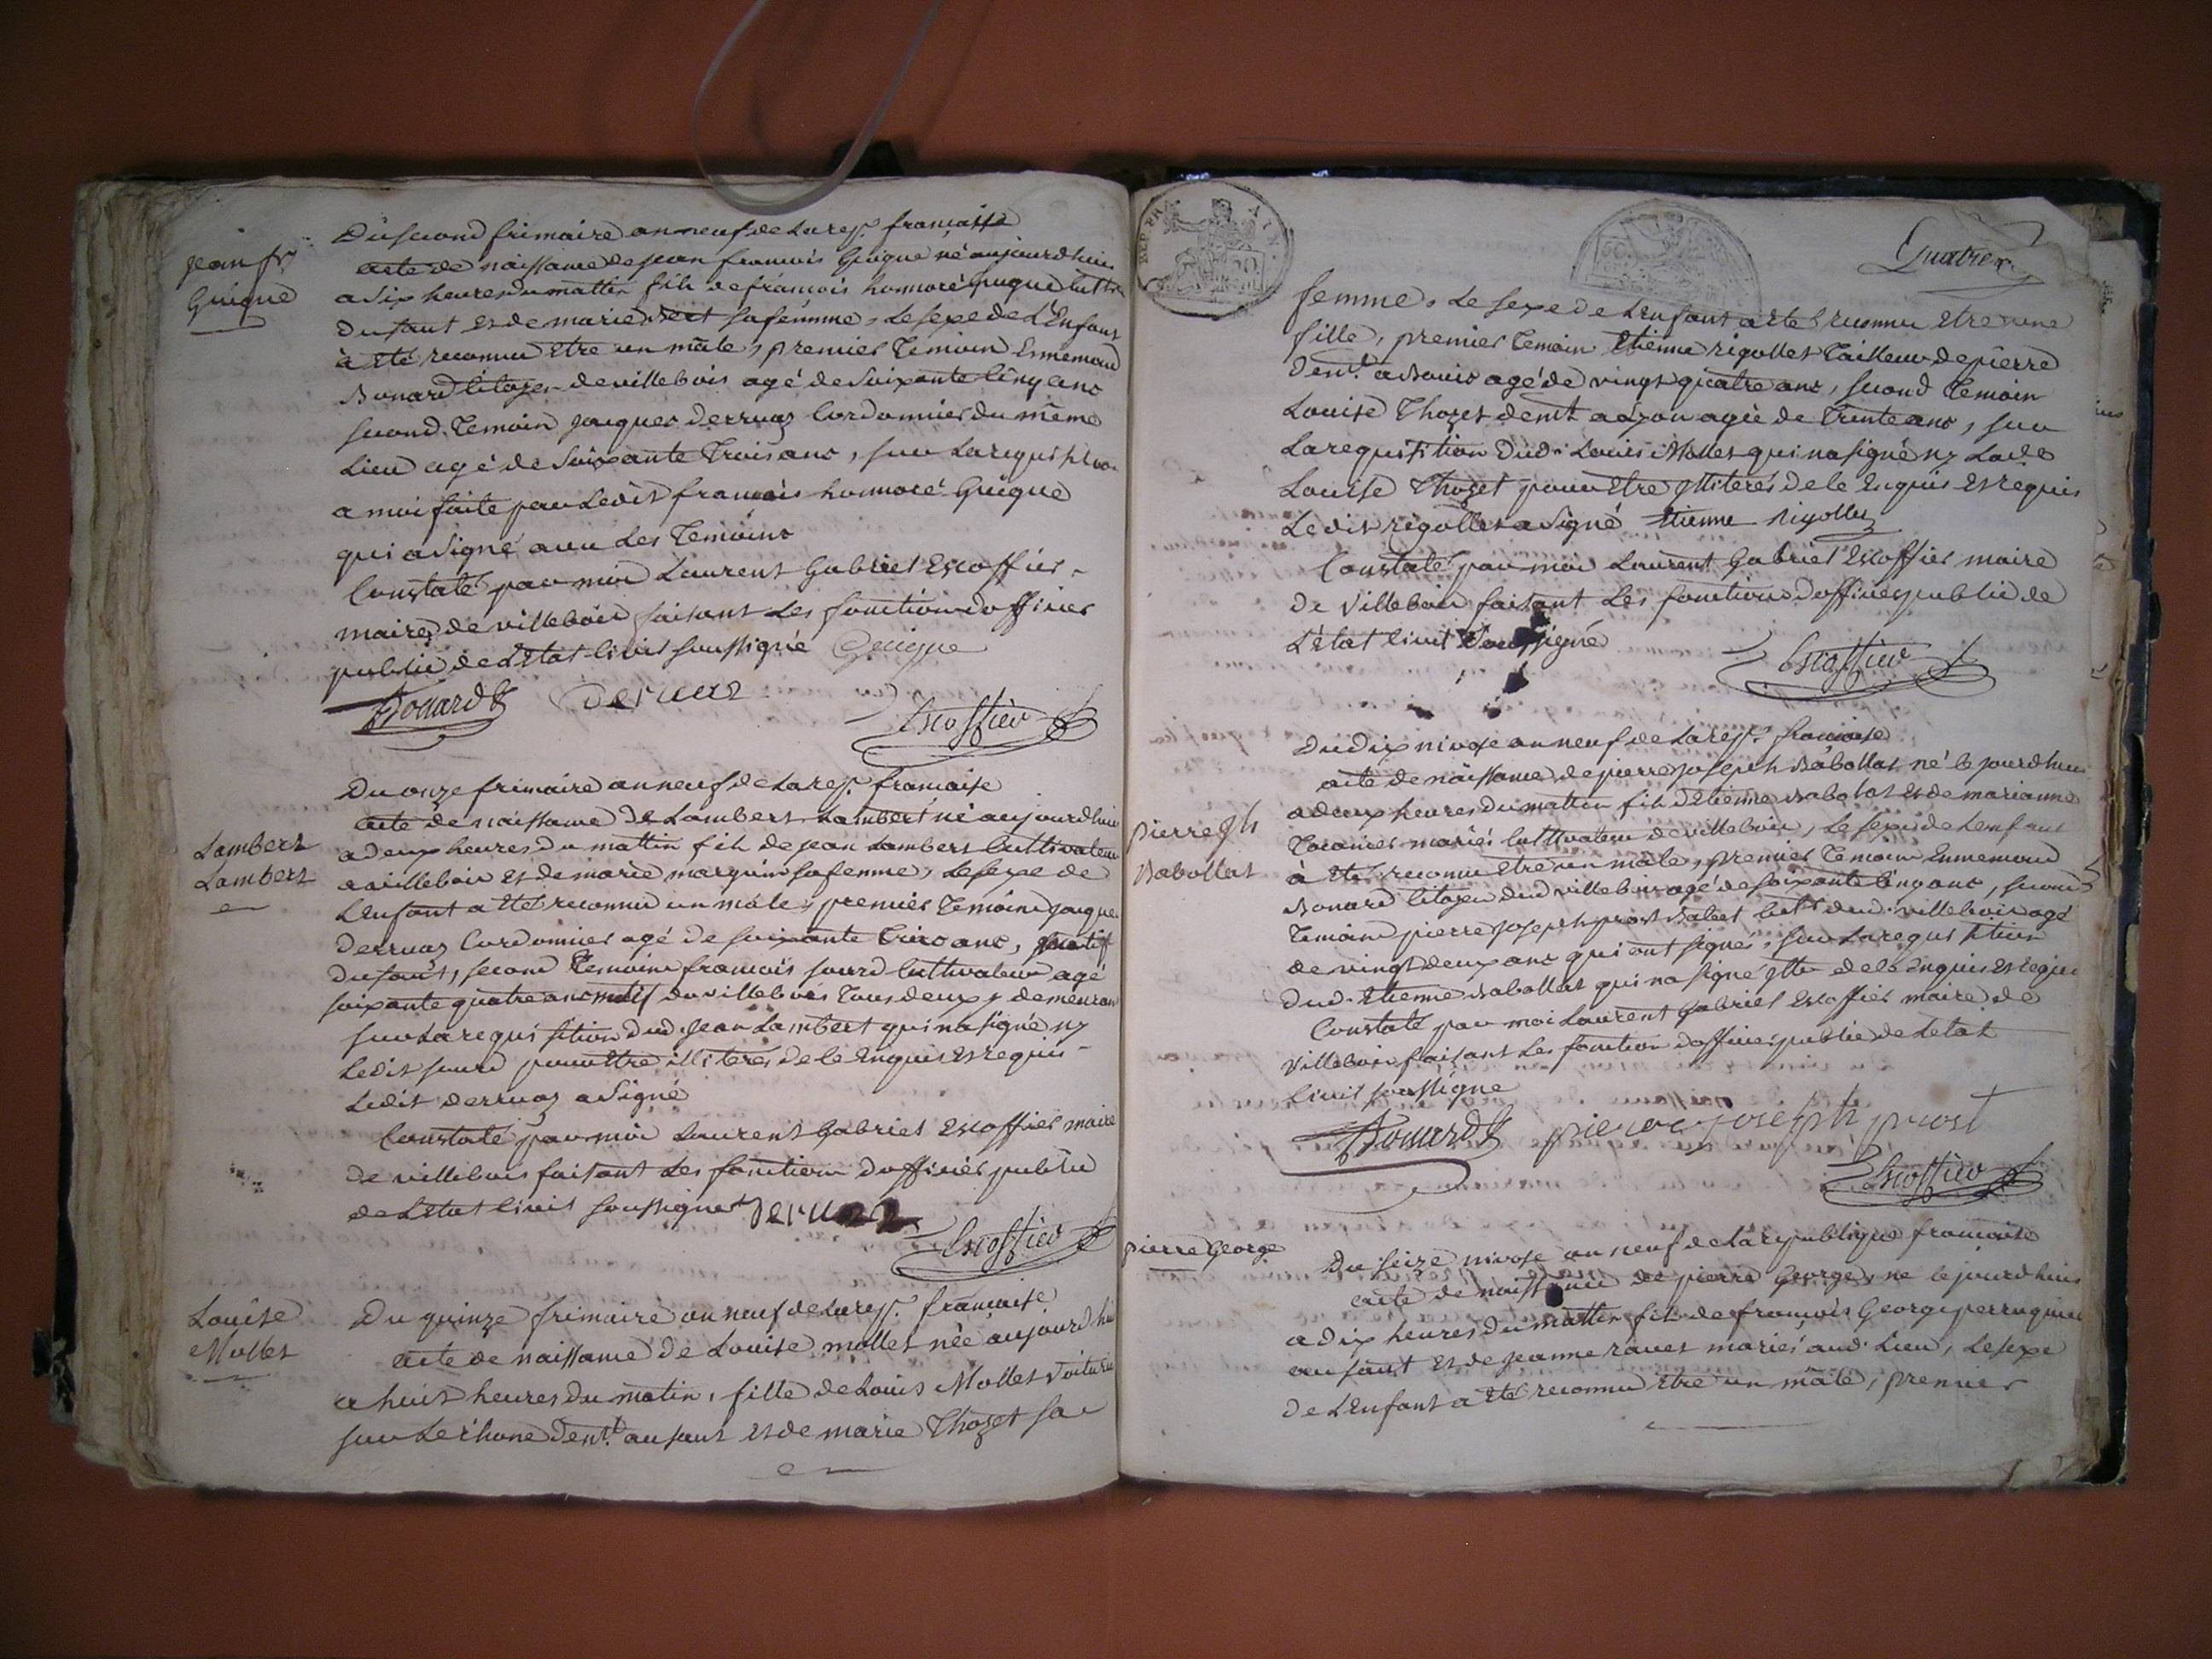 Jean fr.
Guigue
Du second frimaire an neuf de La rep. francaise
acte de naissance de jean francois Guigue né aujourdhuis
a Six heures du mattin fils de francois honnoré guigue cult.
du saut et de marie sa femme, Le sexe de L'Enfant
à Eté reconnu Etre un mâle, premier Temoin Ennemond
Bonard Citoyen de villebois agé de Soixante Cinq ans
second Temoin jacques derruaz Cordonnier du même
Lieu agé de Soixante Trois ans, sur La requisition
a moi faite par Ledit francois honnoré Guigue
qui a Signé avec Les Temoins
Constaté par moi Laurent Gabriel Escoffier
maire de villebois faisant Les fonction dofficier
public de L'Etat Civil soussigné Guigue
Bonard deruaz
Escoffier
Lambert
Lambert
Du onze frimaire an neuf de La rep. francaise
acte de naissance de Lambert Lambert né aujourdhuis
a deux heures du mattin fils de jean Lambert Cultivateur
a villebois et de marie marguin sa femme, Le sexe de
L'enfant a Eté reconnu un mâle, premier Temoin jacque
derruaz Cordonnier agé de soixante Trois ans, natif
du saut, second Temoin francois sourd Cultivateur agé
soixante quatre ans natif de villebois Tous deux y demeurant
sur La requisition dud. jean Lambert qui na signé ny
Ledit sourd pour Etre illiteres de ce Enquis et requis
Ledit derruaz a Signé
Constaté par moi Laurent Gabriel Escoffier maire
de villebois faisant Les fonction dofficier public
de L'Etat Civil soussigné deruaz
Escoffier
Louise
Mollet
Du quinze frimaire an neuf de La rep. francaise
acte de naissance de Louise mollet née aujourdhui
a huit heures du matin, fille de Louis Mollet Voiturier
sur Le rhone dem.t au saut et de marie Thozet sa
Quatre
femme, Le sexe de L'enfant a Eté reconnu Etre une
fille, premier Temoin Etienne rigollet Tailleur de pierre
dem.t a Bouis agé de vingt quatre ans, second Temoin
Louise Thozet dem.t a agée de Trente ans, sur
La requisition dud. Louis Mollet qui na signé ny Lade
Louise Thozet pour Etre illiterés de ce Enquis et requis
Ledit rigollet a Signé Etienne Rigollet
Constaté par moi Laurent Gabriel Escoffier maire
de Villebois faisant Les fonctions dofficier public de
L'état Civil Soussigné
Escoffier
pierre jph
Babollat
Du dix nivose an neuf de La rep. francaise
acte de naissance de pierre joseph Babollat né ce jourdhui
a deux heures du mattin fils dEtienne Babolat et de marianne
mariés Culltivateur de villebois, Le sexe de L'enfant
à Eté reconnu Etre un mâle, premier Temoin Ennemond
Bonard Citoyen dud villebois agé de soixante Cinq ans, second
Temoin pierre joseph prost cult. dud. villebois agé
de vingt deux ans qui ont signés, sur La requisition
dud. Etienne Babollat qui na signé de ce Enquis et requis
Constaté par moi Laurent Gabriel Escoffier maire de
Villebois faisant Les fonction dofficier public de L'etat
Civil soussigné
Bonard pierre joseph prost
Escoffier
pierre George
Du seize nivose an neuf de La republique francaise
acte de naissance de pierre George, né ce jourdhuis
a dix heures du mattin fils de francois George perruquier
au saut et de jeanne ravet mariés aud. Lieu, Le sexe
de L'Enfant a Eté reconnu Etre un mâle, premier